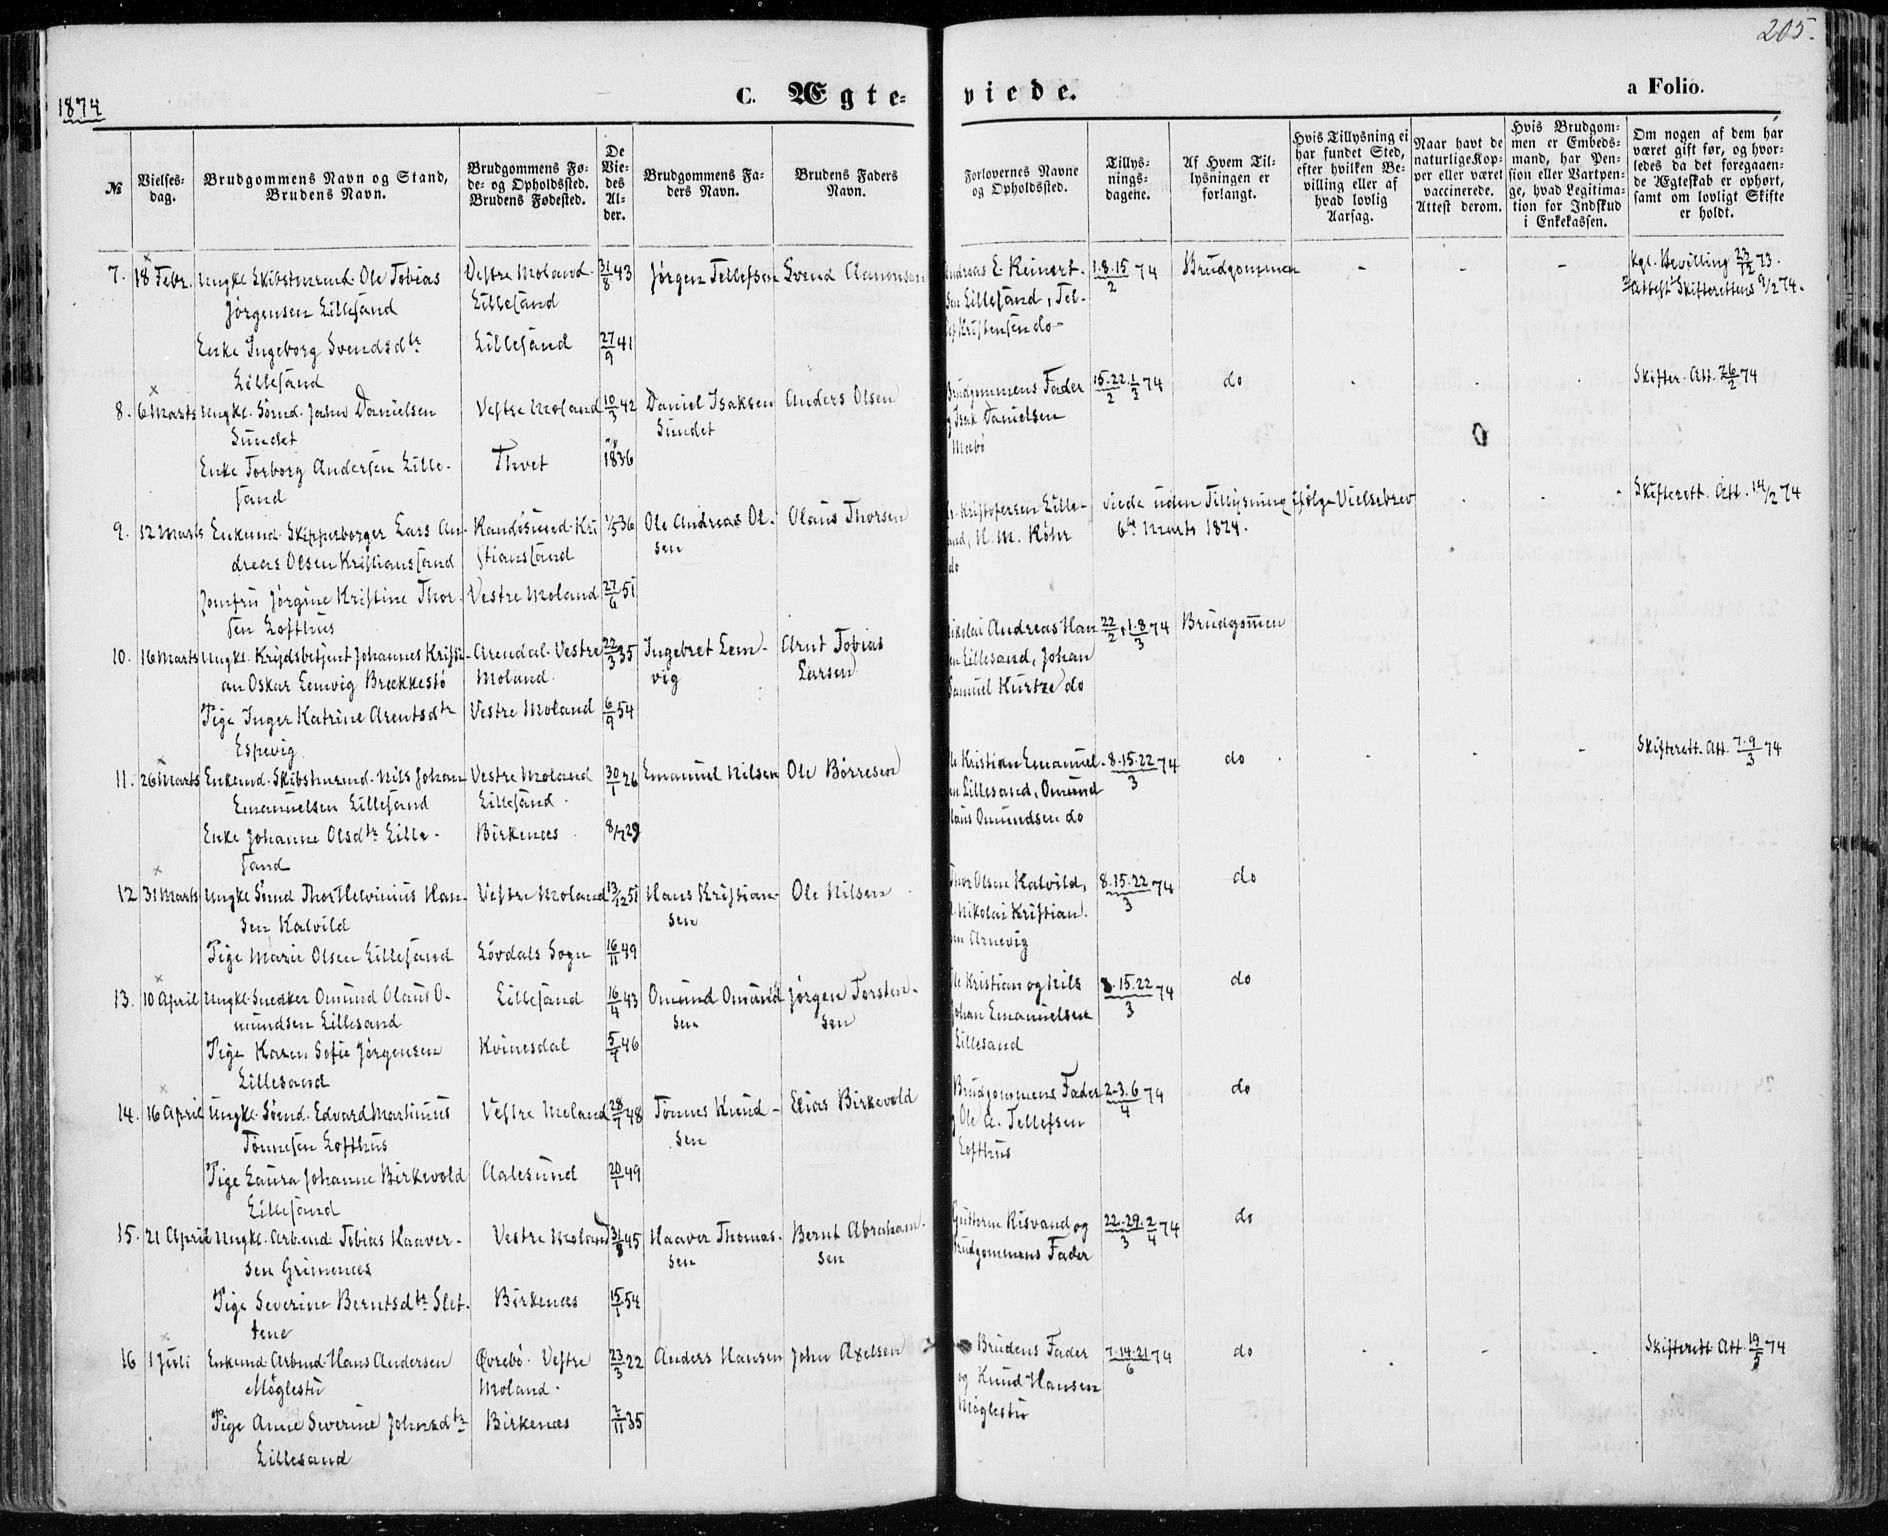 205.
1874
C. Ægte-
viede.
a Folio.
№
Vielses-
dag.
Brudgommens Navn og Stand,
Brudens Navn.
Brudgommens Fø-
de- og Opholdssted.
Brudens Fødested.
De
Vie-
des
Al-
der.
Brudgommens Fa-
ders Navn.
Brudens Faders
Navn.
Forlovernes Navne
og Opholdssted.
Tillys-
nings-
dagene.
Af Hvem Til-
lysningen er
forlangt.
Hvis Tillysning ei
har fundet Sted,
efter hvilken Be-
villing eller af
hvad lovlig
Aarsag.
Naar havt de
naturlige Kop-
per eller været
vaccinerede.
Attest derom.
Hvis Brudgom-
men er Embeds-
mand, har Pen-
sion eller Vartpen-
ge, hvad Legitima-
tion for Indskud
i Enkekassen.
Om nogen af dem har
været gift før, og hvor-
ledes da det foregaaen-
de Ægteskab er ophørt,
samt om lovligt Skifte
er holdt.
7. 18 Febr. Ungkl. Skibstmrmd. Ole Tobias Vestre Moland. 31/8 43 Jørgen Tellefsen Svend Aanonsen
Jørgensen Lillesand Lillesand
Enke Ingeborg Svendsdtr Lillesand 27/9 41
Lillesand
8. 6 Marts Ungkl. Sømd. Jahn Danielsen Vestre Moland 10/3 42 Daniel Isaksen Anders Olsen
Sundet Sundet
Enke Torborg Andersen Lille- Thvet 1836
sand
9. 12 Marts Enkemd. Skipperborger Lars An- Randøsund. Kri 1/5 36 Ole Andreas Ol- Olaus Thorsen
dreas Olsen Kristianssand stianssand sen
Jomfru Jørgine Kristine Thor- Vestre Moland 27/6 51
sen Lofthus
10. 16 Marts Ungkl. Krydsbetjent Johannes Kristi- Arendal. Vestre 22/3 35 Ingebret Lem- Arnt Tobias
an Oskar Lemvig Brækkestø Moland. vig Larsen
Pige Inger Katrine Arentsdtr Vestre Moland 6/9 54
Espevig
11. 26 Marts Enkemd. Skibstmrmd. Nils Johan Vestre Moland 30/1 26 Emanuel Nilsen Ole Børresen
Emanuelsen Lillesand Lillesand.
Enke Johanne Olsdtr Lille- Birkenes 8/7 29
sand
12 31 Marts Ungkl. Sømd Thor Helvinius Han- Vestre Moland 13/12 51 Hans Kristian- Ole Nilsen
sen Kalvild sen
Pige Marie Olsen Lillesand Løvdals Sogn 16/11 49
13. 10 April Ungkl. Snedker Omund Olaus O- Lillesand 16/4 43 Omund Omund Jørgen Torsten-
mundsen Lillesand sen sen
Pige Karen Sofie Jørgensen Kvinesdal 46
Lillesand
14. 16 April Ungkl. Sømd. Edvard Martinius Vestre Moland 48 Tønnes Knud- Elias Birkevold
Tønnesen Lofthus sen
Pige Laura Johanne Birkevold Aalesund 20/1 49
Lillesand
15. 21 April Ungkl. Arb.md. Tobias Haaver- Vestre Moland 31/8 45 Haaver Thomas- Bernt Abraham-
sen Grimenes sen sen
Pige Severine Berntsdtr Slet- Birkenæs 15/1 54
tene
16 1 Juli Enkemd. Arbmd. Hans Andersen Øvrebø. Vestre 23/3 22 Anders Hansen John Axelsen
Møglestu Moland.
Pige Anne Severine Johnsdtr Birkenæs 35
Lillesand
Andreas E. Reinert- 1.8.15/2 74 Brudgommen - - - Kgl. Bevilling 23/12 73.
sen Lillesand, Tel- Attest Skifterettens 9/2 74.
lef Kristensen do
Brudgommens Fader 15.22./2 74 do Skifter. Att. 26/2 74
g Isak Danielsen
Maabø
Kristofersen Lille- viede uden Tillysning ifølge Vielsebrev Skifterett. Att. 14/2 74
and, H. M. Køhr 6te Marts 1874.
do
Nikolai Andreas Han 22/2, 1.8/3 74 Brudgommen
en Lillesand, Johan
Samuel Kurtze do
le Kristian Emanuel- 8.15.22/3 74 do Skifterett. Att. 7.9/3 74
en Lillesand, Omund
laus Omundsen do
Thor Olsen Kalvild, 8.15.22/3 74 do
Nikolai Kristian.
en Arnevig
le Kristian og Nils 8.15.22/3 74 do
Johan Emanuelsen
Lillesand
Brudgommens Fader 2.3.6/4 74 do
g Ole A. Tellefsen
Lofthus
Gutterm Risvand og 22.29./3 2/4 74 do
Brudgommens Fader
Brudens Fader 7.14.21/6 74 do Skifterett Att. 19/5 74
og Knud Hansen
Møglestu